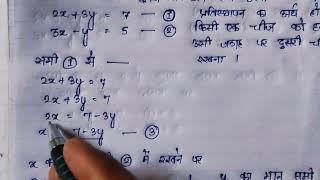 2x + 3y = 7 — ①
3x - y = 5 — ②
प्रतिस्थापन का कार्य
किसी एक चीज को
जगह पर दूसरी
रखना।
समी ① से
2x + 3y = 7
2x + 3y = 7
2x = 7 - 3y
7 - 3y — ③
x का ② में रखने पर
y का मान समी